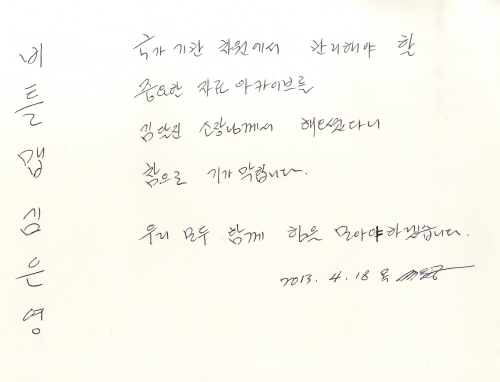 비틀맵 심은영
국가 기관 차원에서 관리해야 할
중요한 자료 아카이브를
김달진 소장님께서 해오셨다니
참으로 기가 막힙니다.
우리 모두 함께 힘을 모아야하겠습니다.
2013. 4. 18 목